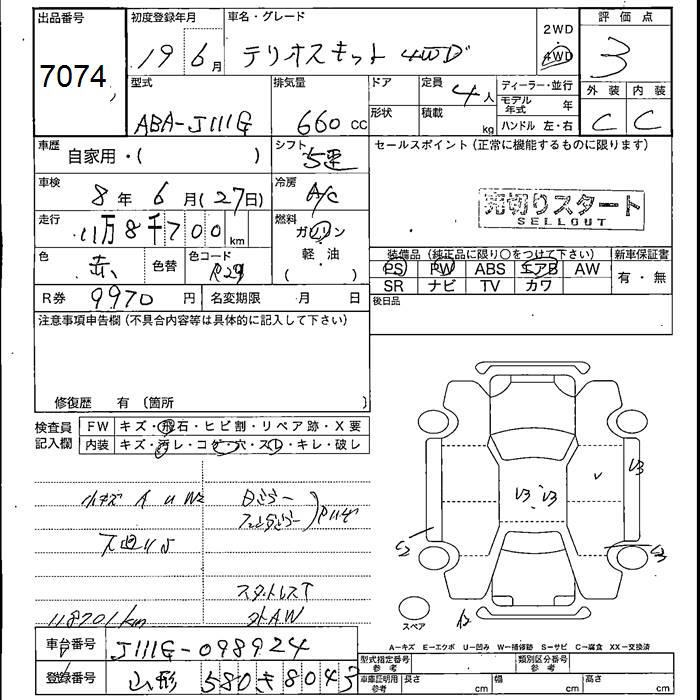 出品番号
7074
初度登録年月
19 6月
車名・グレード
テリオスキッド 4WD
2WD
4WD
評価点
3
外装 内装
C C
型式
ABA-J111G
排気量
660 CC
ドア
形状
定員
4人
積載
kg
ディーラー・並行
モデル年式 年
ハンドル 左・右
車歴
自家用・( )
シフト
5速
セールスポイント (正常に機能するものに限ります)
車検
8年 6月(27日)
冷房
A/C
売切りスタート
SELLOUT
走行
11万8千700km
燃料
ガソリン
軽・油
( )
色
赤
色替
色コード
R29
装備品 (純正品に限り○をつけて下さい)
新車保証書
PS PW ABS エアB AW
SR ナビ TV カワ
有・無
R券 9970円
名変期限 月 日
後日品
注意事項申告欄 (不具合内容等は具体的に記入して下さい)
修復歴 有 (箇所 )
検査員記入欄
FW キズ・飛石・ヒビ割・リペア跡・X要
内装 キズ・汚レ・コゲ・穴・スレ・キレ・破レ
小キズ A U W2
スタットレスT
外AW
118701km
V3 V3
V
V3
S2
S3
スペア
A-キズ E-エクボ U-凹み W-補修跡 S-サビ C-腐食 XX-交換済
車台番号
J111G-098924
登録番号
山形 580 き 8043
型式指定番号
参考
類別区分番号
参考
車庫証明用
参考
長さ cm
幅 cm
高さ cm